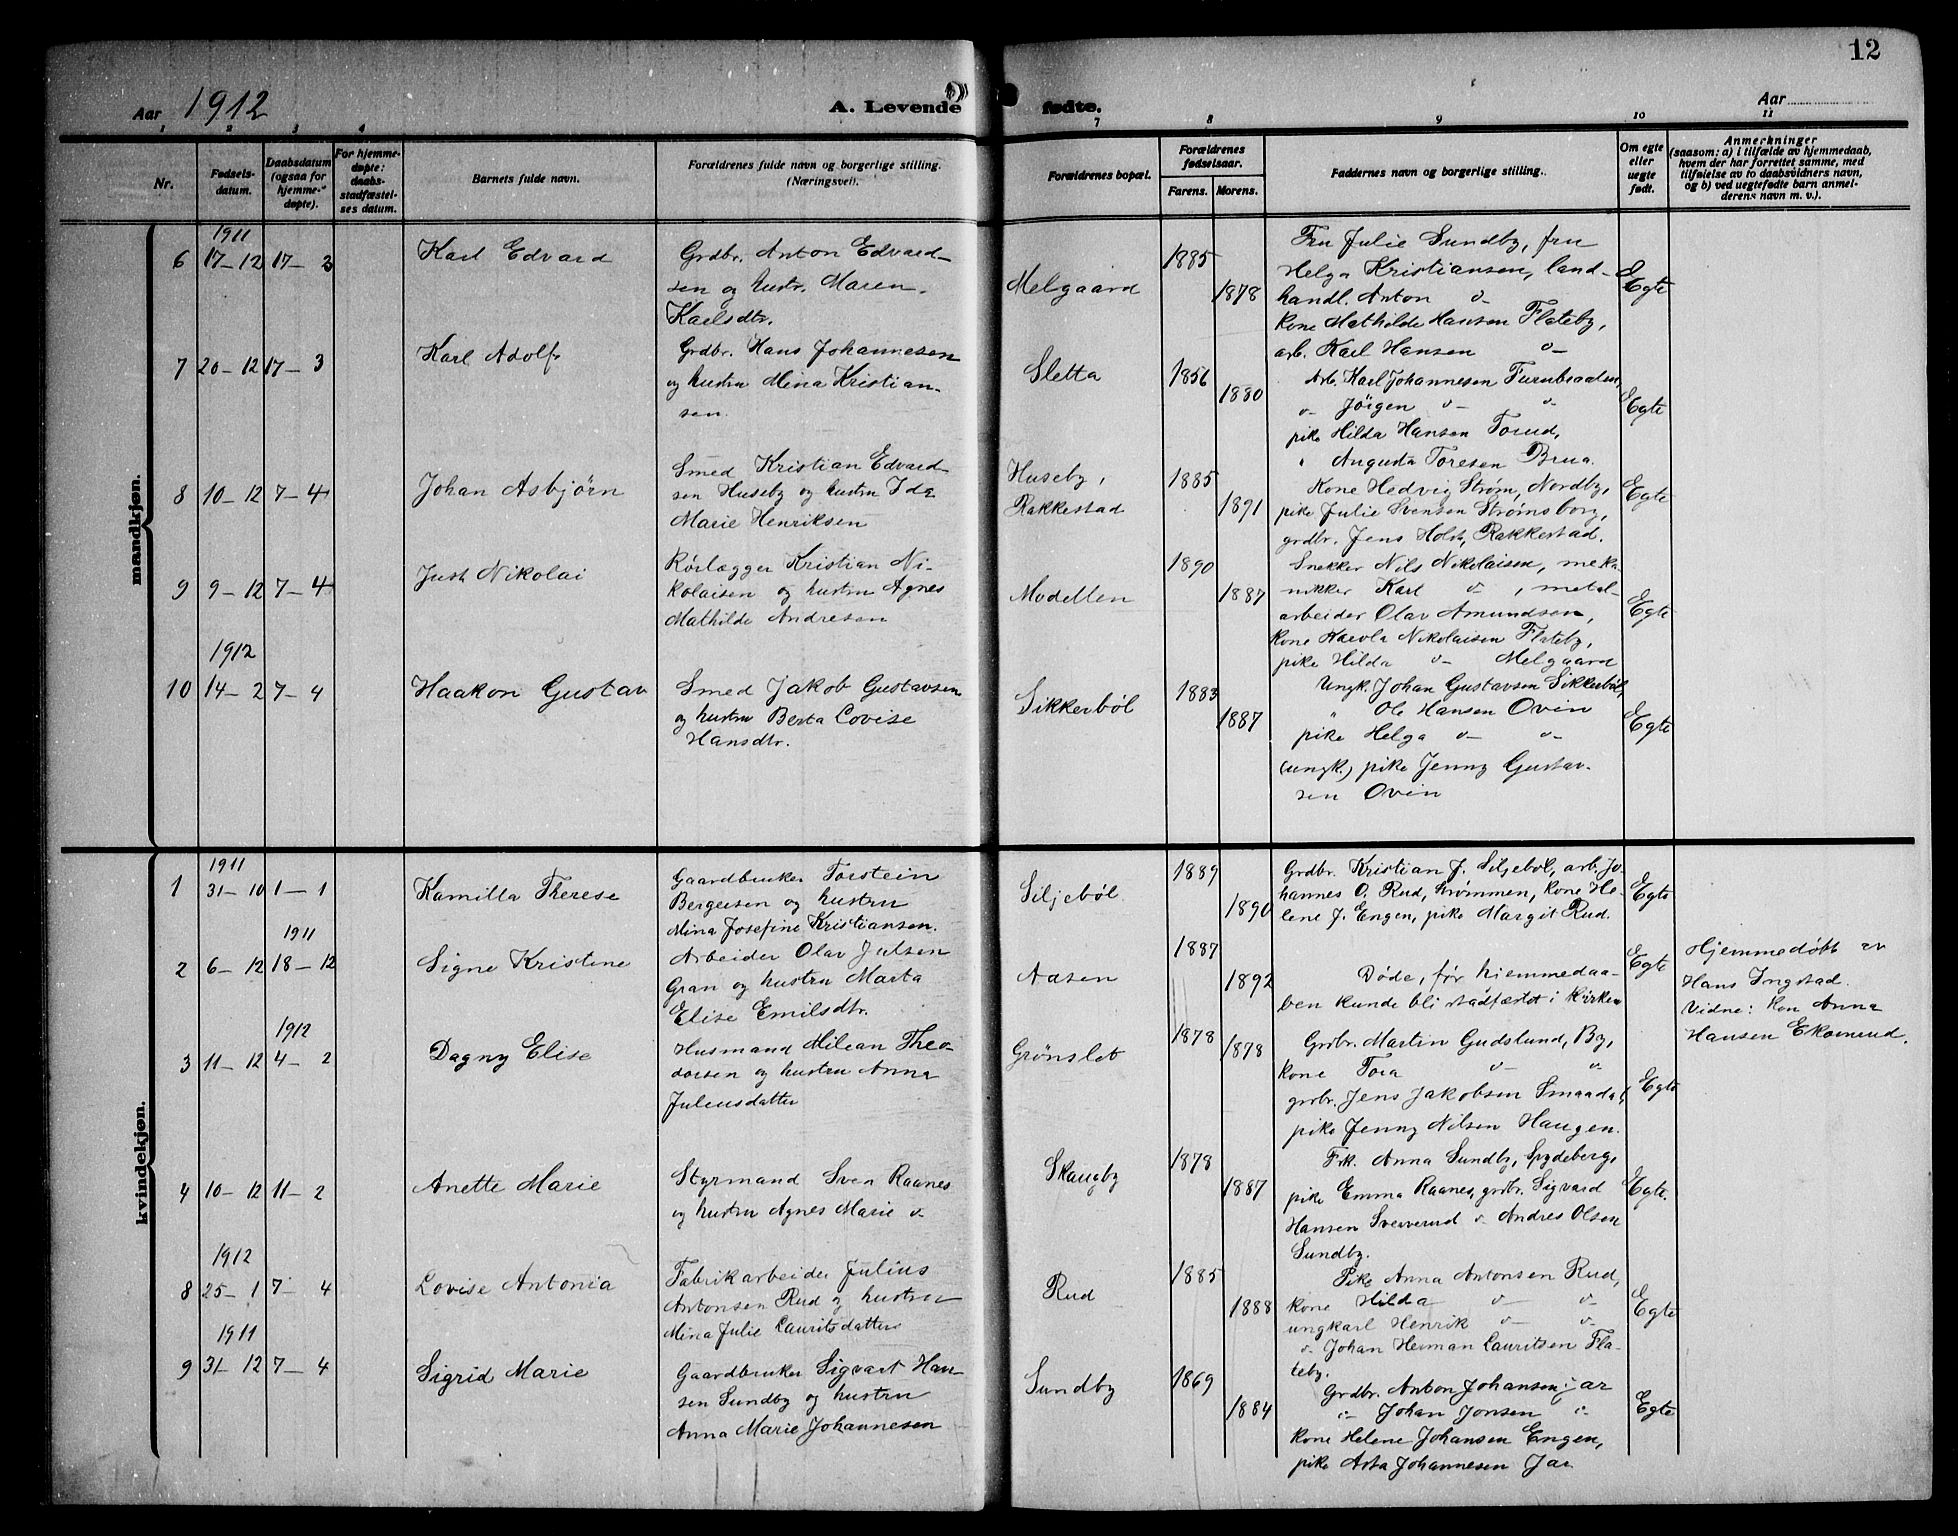 12
Aar 1912
A. Levende
fødte.
Aar
1 2 3 4
7 8 9 10 11
Nr.
Fødsels-
datum.
Daabsdatum
(ogsaa for
hjemme-
døpte).
For hjemme-
døpte:
daabs-
stadfæstel-
ses datum.
Barnets fulde navn.
Forældrenes fulde navn og borgerlige stilling.
(Næringsvei).
Forældrenes bopæl.
Forældrenes
fødselsaar.
Farens. Morens.
Faddernes navn og borgerlige stilling.
Om egte
eller
uegte
født.
Anmerkninger
(saasom: a) i tilfælde av hjemmedaab,
hvem der har forrettet samme, med
tilføielse av to daabsvidners navn,
og b) ved uegtefødte barn anmel-
derens navn m. v.).
mandkjøn.
1911
6 17-12 17-3 Karl Edvard
Grdbr. Anton Edvard-
sen og hustr. Maren
Karlsdtr.
Melgaard
1885
1878
Fru Julie Sundby, fru
Helga Kristiansen, land-
handl. Anton v-
kone Mathilde Hansen Flateby,
arb. Karl Hansen v-
Egte
7 20-12 17-3 Karl Adolf
Grdbr. Hans Johannesen
og hustru Mina Kristian-
sen.
Sletta
1856
1880
Arb. Karl Johannesen Turnbraaten,
v- Jörgen v- v-
pike Hilda Hansen Torud,
" Augusta Toresen Brua.
Egte
8 10-12 7-4 Johan Asbjörn
Smed Kristian Edvard-
sen Huseby og hustru Ida
Marie Henriksen
Huseby,
Rakkestad
1885
1891
Kone Hedvig Strøm, Nordby,
pike Julie Svensen Strømsborg,
grdbr. Jens Holst, Rakkestad.
Egte
9 9-12 7-4 Just Nikolai
Rørlægger Kristian Ni-
kolaisen og hustru Agnes
Mathilde Andresen
Modellen
1890
1887
Snekker Nils Nikolaisen, meka-
nikker Karl v-, metal-
arbeider Olav Amundsen,
kone Karola Nikolaisen Flateby,
pike Hilda v- Melgaard
Egte
1912
10 14-2 7-4 Haakon Gustav
Smed Jakob Gustavsen
og hustru Berta Lovise
Hansdtr.
Sikkerböl
1883
1887
Ungk. Johan Gustavsen Sikkerböl,
" Ole Hansen Ovin
pike Helga v- v-
(ungk.) pike Jenny Gustav-
sen Ovin
Egte
kvindekjøn.
1911
1 31-10 1-1 Kamilla Therese
Gaardbruker Torstein
Bergersen og hustru
Mina Josefine Kristiansen.
Siljeböl
1889
1890
Grdbr. Kristian J. Siljeböl, arb. Jo-
hannes O. Rud, Strømmen, kone He-
lene J. Engen, pike Margit Rud.
Egte
1911
2 6-12 18-12 Signe Kristine
Arbeider Olav Julsen
Gran og hustru Marta
Elise Emilsdtr.
Aasen
1887
1892
Døde, før hjemmedaa-
ben kunde bli stadfæstet i kirken
Egte
Hjemmedöbt av
Hans Ingstad.
Vidne: kon Anna
Hansen Ekornrud.
1912
3 11-12 4-2 Dagny Elise
Husmand Milean Theo-
dorsen og hustru Anna
Juliusdatter
Grönslet
1878
1878
Grdbr. Martin Gudslund, By,
kone Tora v- v-
grdbr. Jens Jakobsen Smaadal,
pike Jenny Nilsen Haugen.
Egte
4 10-12 11-2 Anette Marie
Styrmand Sven Raanes
og hustru Agnes Marie v-
Skaugby
1878
1887
Frk. Anna Sundby, Spydeberg,
pike Emma Raanes, grdbr. Sigvard
Hansen Sververud v- Andres Olsen
Sundby.
Egte.
1912
8 25-1 7-4 Lovise Antonia
Fabrikarbeider Julius
Antonsen Rud og hustru
Mina Julie Lauritsdatter
Rud
1885
1888
Pike Anna Antonsen Rud,
kone Hilda v- v-
ungkarl Henrik v- v-
v- Johan Herman Lauritsen Fla-
teby.
Egte
1911
9 31-12 7-4 Sigrid Marie
Gaardbruker Sigvart Han-
sen Sundby og hustru
Anna Marie Johannesen
Sundby
1869
1884
Grdbr. Anton Johansen Jar
v- Johan Jonsen v-
Kone Helene Johansen Engen,
pike Asta Johannesen Jar
Egte